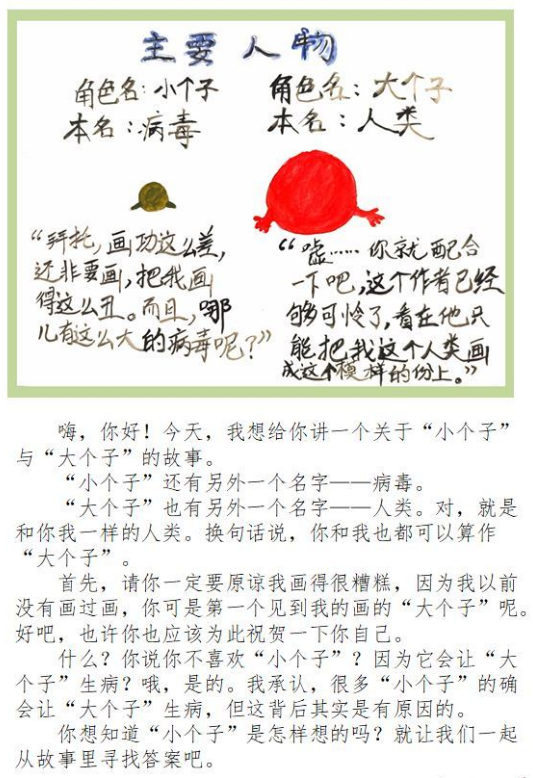 主要人物
角色名：小个子
本名：病毒
角色名：大个子
本名：人类
“拜托，画功这么差，
还非要画，把我画
得这么丑。而且，哪
儿有这么大的病毒呢？”
“嘘……你就配合
一下吧，这个作者已经
够可怜了，看在他只
能把我这个人类画
成这个模样的份上。”
嗨，你好！今天，我想给你讲一个关于“小个子”
与“大个子”的故事。
“小个子”还有另外一个名字——病毒。
“大个子”也有另外一个名字——人类。对，就是
和你我一样的人类。换句话说，你和我也都可以算作
“大个子”。
首先，请你一定要原谅我画得很糟糕，因为我以前
没有画过画，你可是第一个见到我的画的“大个子”呢。
好吧，也许你也应该为此祝贺一下你自己。
什么？你说你不喜欢“小个子”？因为它会让“大
个子”生病？哦，是的。我承认，很多“小个子”的确
会让“大个子”生病，但这背后其实是有原因的。
你想知道“小个子”是怎样想的吗？就让我们一起
从故事里寻找答案吧。